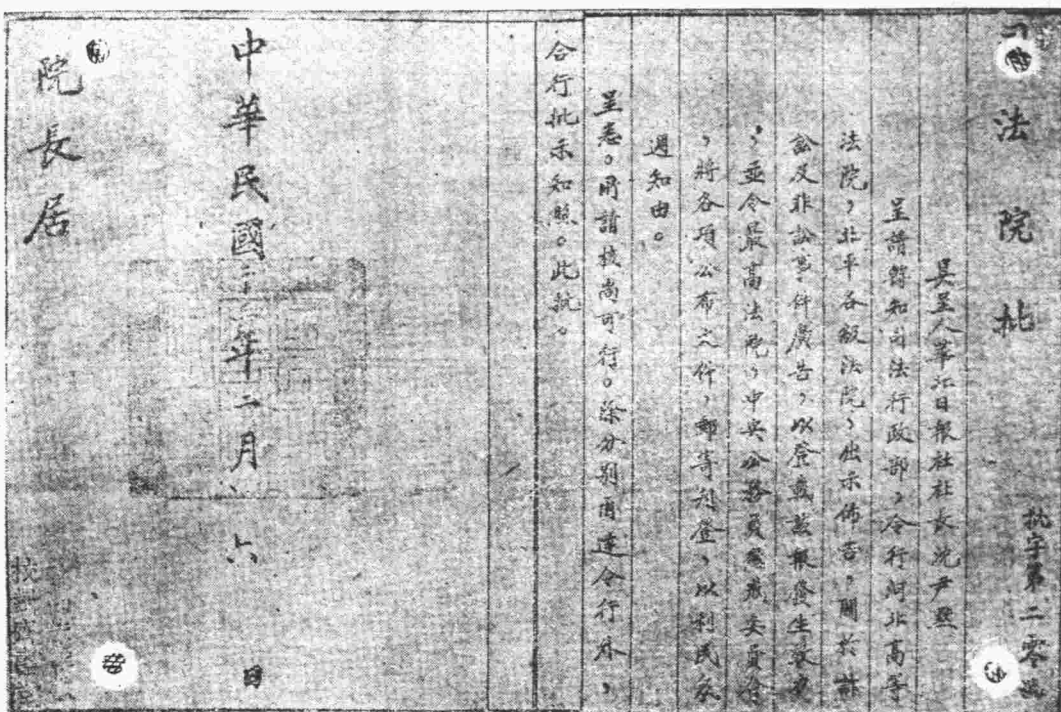 司法院批
批字第二零號
具呈人華北日報社社長沈尹默
呈請飭知司法行政部，令行河北高等
法院，北平各級法院，出示佈告，關於訴
訟及非訟事件廣告，以登載該報發生效力
，並令最高法院，中央公務員懲戒委員會
，將各項公布文件，郵寄刊登，以利民眾
週知由。
呈悉。所請核尚可行。除分別函達令行外，
合行批示知照。此批。
中華民國二十二年二月六日
院長居